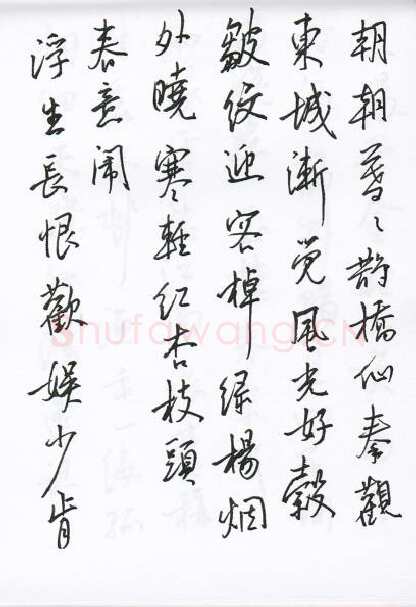 朝朝暮暮鹊桥仙秦觀
東城漸觉風光好縠
皺纹迎客棹绿楊烟
外曉寒轻红杏枝頭
春意闹
浮生長恨歡娱少肯
shufawang.CN